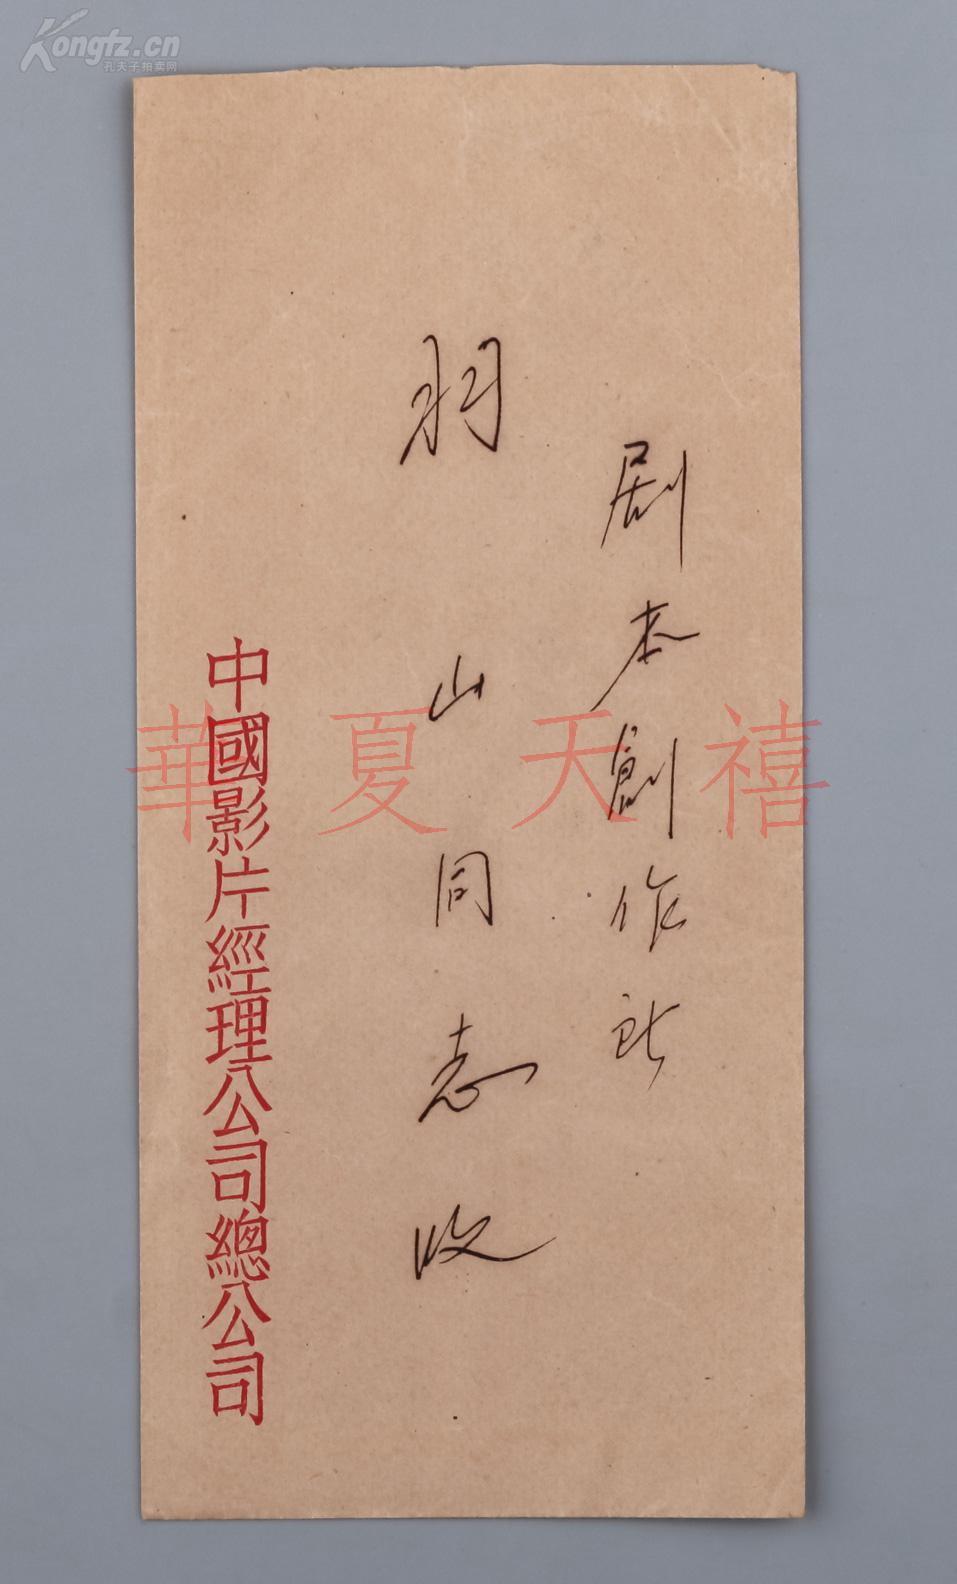 Kongfz.cn
孔夫子拍卖网
剧本創作社
羽山同志收
中國影片經理公司總公司
華夏天禧